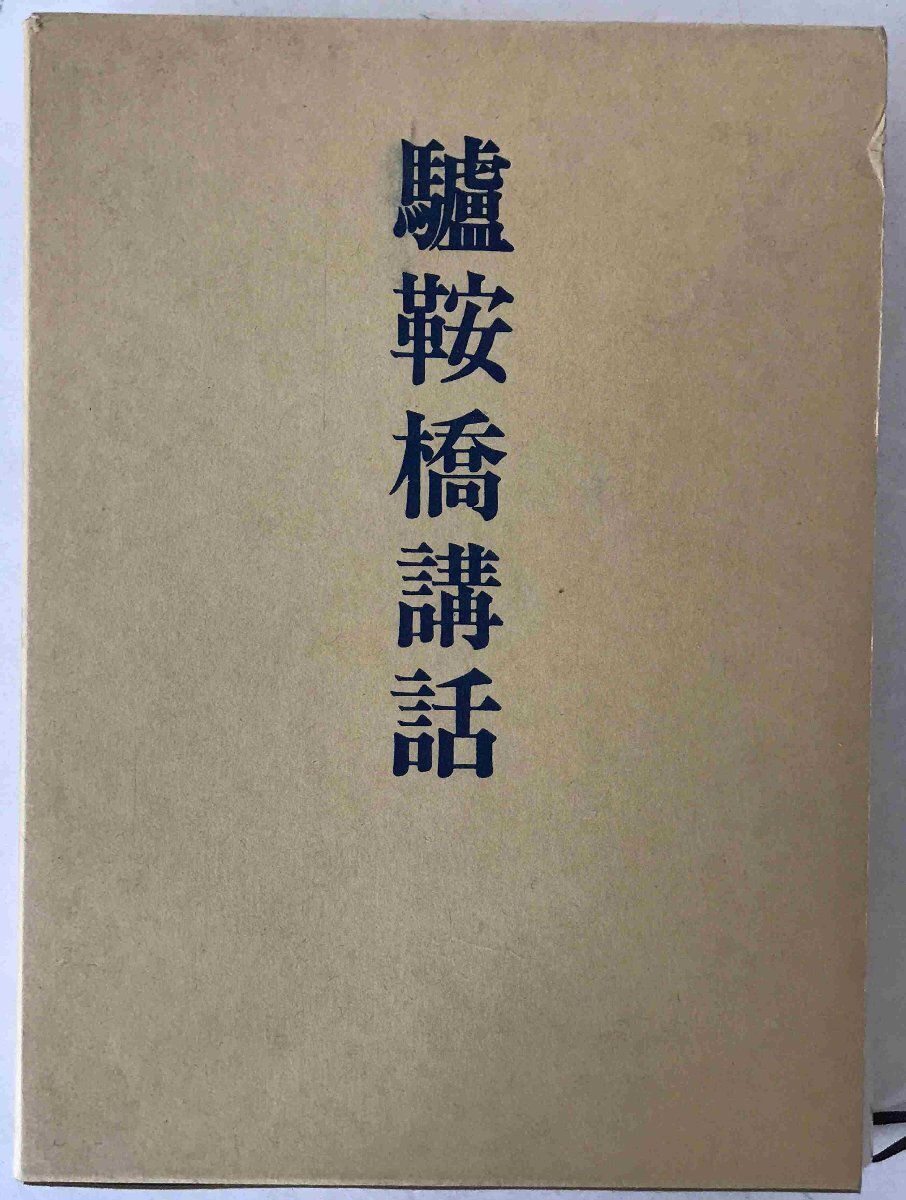 驢鞍橋講話